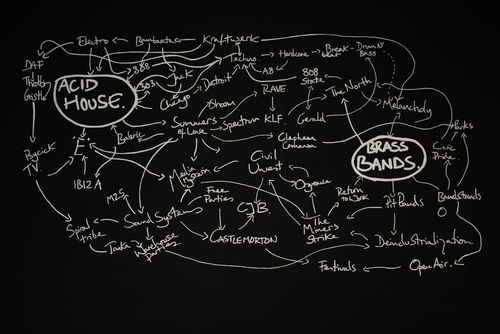 Electro
Bambaataa
Kraftwerk
DAF
Throbbing
Gristle
808
303
Jack
Chicago
Detroit
Techno
Hardcore
Break
beat
Drum N'
Bass
A8
808
State
The North
Melancholy
ACID
HOUSE.
Shoom
RAVE
Summers
of Love
Spectrum
KLF.
Gerald
Balearic
E.
Psychick
TV
IBIZA
Clapham
Common
BRASS
BANDS.
Civic
Pride
Parks
Media
Hysteria
Civil
Unrest
Orgreave
M25
Free
Parties
CJB.
Return
to Work
Pit Bands
Bandstands
Spiral
Tribe
Sound Systems
Warehouse
Parties
CASTLEMORTON
The
Miners
Strike
Deindustrialization
Festivals
Open Air.